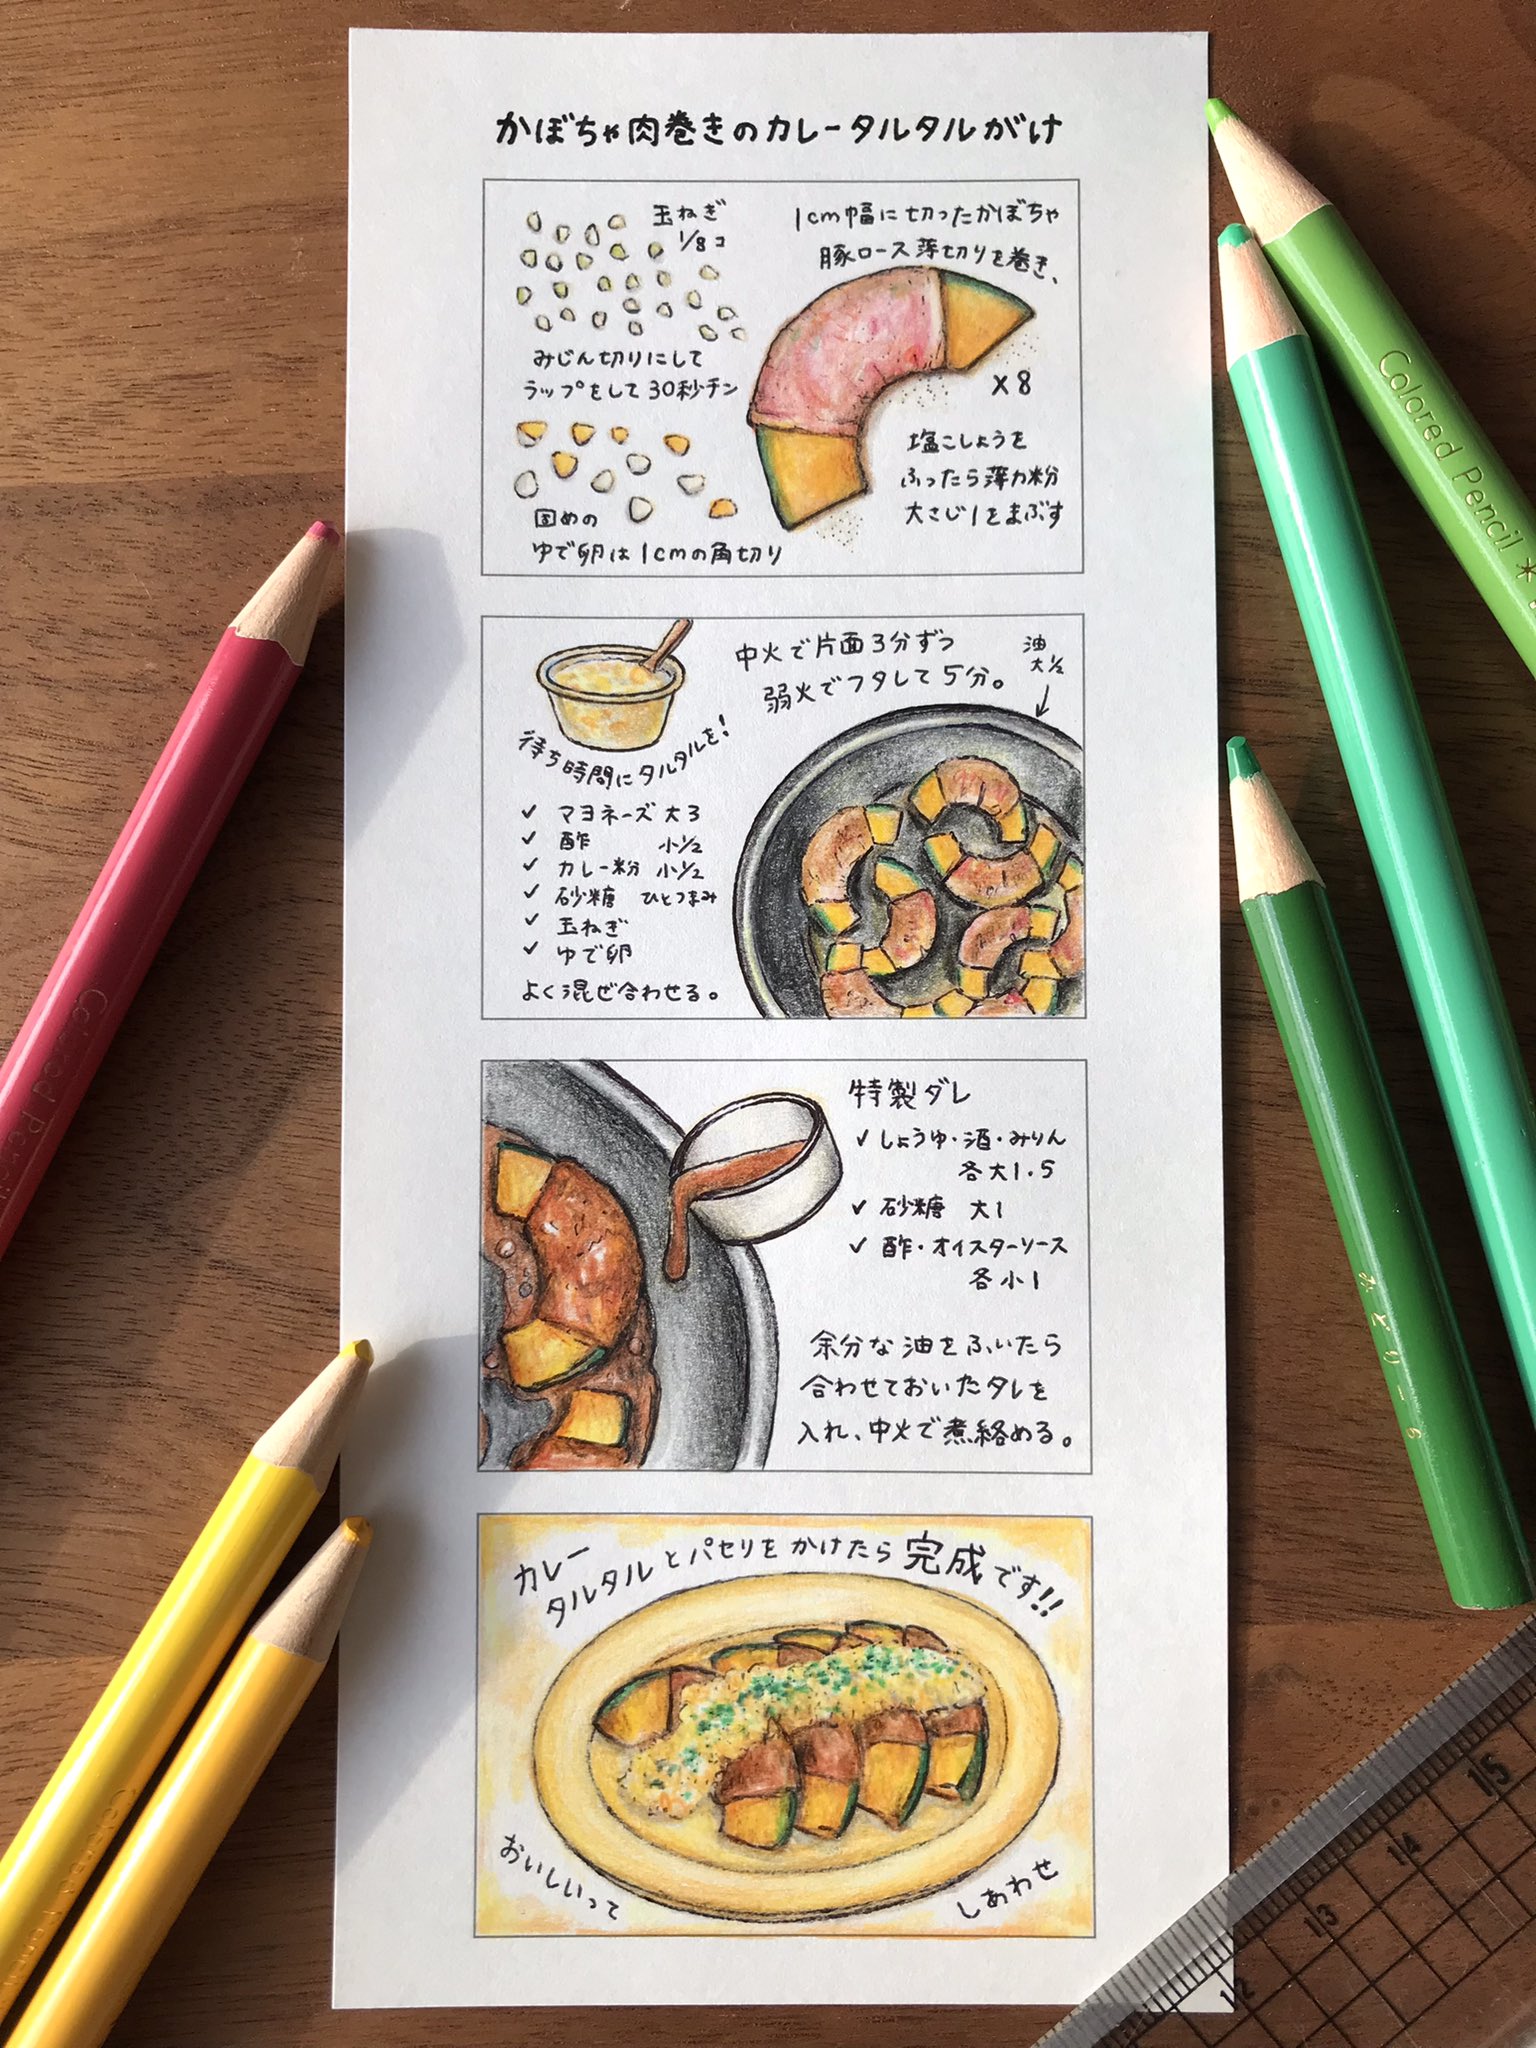 かぼちゃ肉巻きのカレータルタルがけ
玉ねぎ
1/8コ
みじん切りにして
ラップをして30秒チン
固めの
ゆで卵は1cmの角切り
1cm幅に切ったかぼちゃ
豚ロース薄切りを巻き、
×8
塩こしょうを
ふったら薄力粉
大さじ1をまぶす
中火で片面3分ずつ
弱火でフタして5分。
油
大1/2
待ち時間にタルタルを!
✓ マヨネーズ 大3
✓ 酢 小1/2
✓ カレー粉 小1/2
✓ 砂糖 ひとつまみ
✓ 玉ねぎ
✓ ゆで卵
よく混ぜ合わせる。
特製ダレ
✓ しょうゆ・酒・みりん
各大1.5
✓ 砂糖 大1
✓ 酢・オイスターソース
各小1
余分な油をふいたら
合わせておいたタレを
入れ、中火で煮絡める。
カレー
タルタルとパセリをかけたら完成です!!
おいしいって
しあわせ
Colored Pencil *
みどり
Colored Pencil
Colored Pencil
15
14
13
12